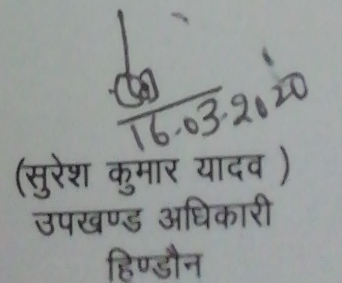 16.03.2020
(सुरेश कुमार यादव )
उपखण्ड अधिकारी
हिण्डौन